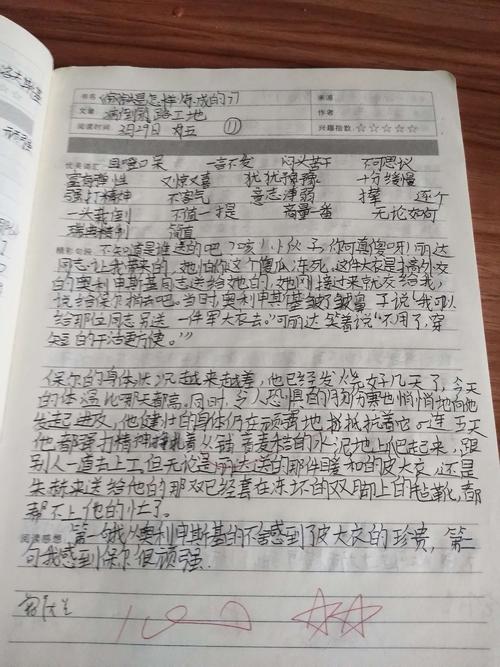 书名 钢铁是怎样炼成的 来源
文章 病倒阑路工地 作者
阅读时间 2月29日 周五 兴趣指数:☆☆☆☆☆
优美词汇 目瞪口呆 一言不发 闷头苦干 不可思议
富有弹性 又惊又喜 犹犹豫豫 十分缓慢
强打精神 不客气 意志薄弱 逐个
一头栽倒 不值一提 商量一番 无论如何
精彩句段 不知道是谁送的吧?咳!小伙子,你可真傻呀!丽达
同志让我带来的,她怕你这个傻瓜冻死。这件大衣是搞外交
的奥利申斯基同志送给她的,她刚接过来就交给我,
说给保尔捎去吧。当时,奥利申斯基皱了皱鼻子说“我可以
给那位同志另送一件军大衣去。”可丽达笑着说“不用了,穿
短的干活更方便。”
保尔的身体状况越来越差,他已经发烧好几天了,今天
的体温比哪天都高。同时,令人恐惧的伤寒也悄悄地向他
发起进攻,他健壮的身体仍在顽强地抵抗着它。连五天
他都强打精神挣扎着从铺着麦秸的水泥地上爬起来,跟
别人一道去上工但无论是丽达送的那件暖和的皮大衣,还是
朱赫来送给他的那双已经套在冻坏的双脚上的毡靴,都
帮不上他的忙了。
阅读感想 第一句我从奥利申斯基的不舍感到了皮大衣的珍贵,第二
句我感到保尔很顽强.